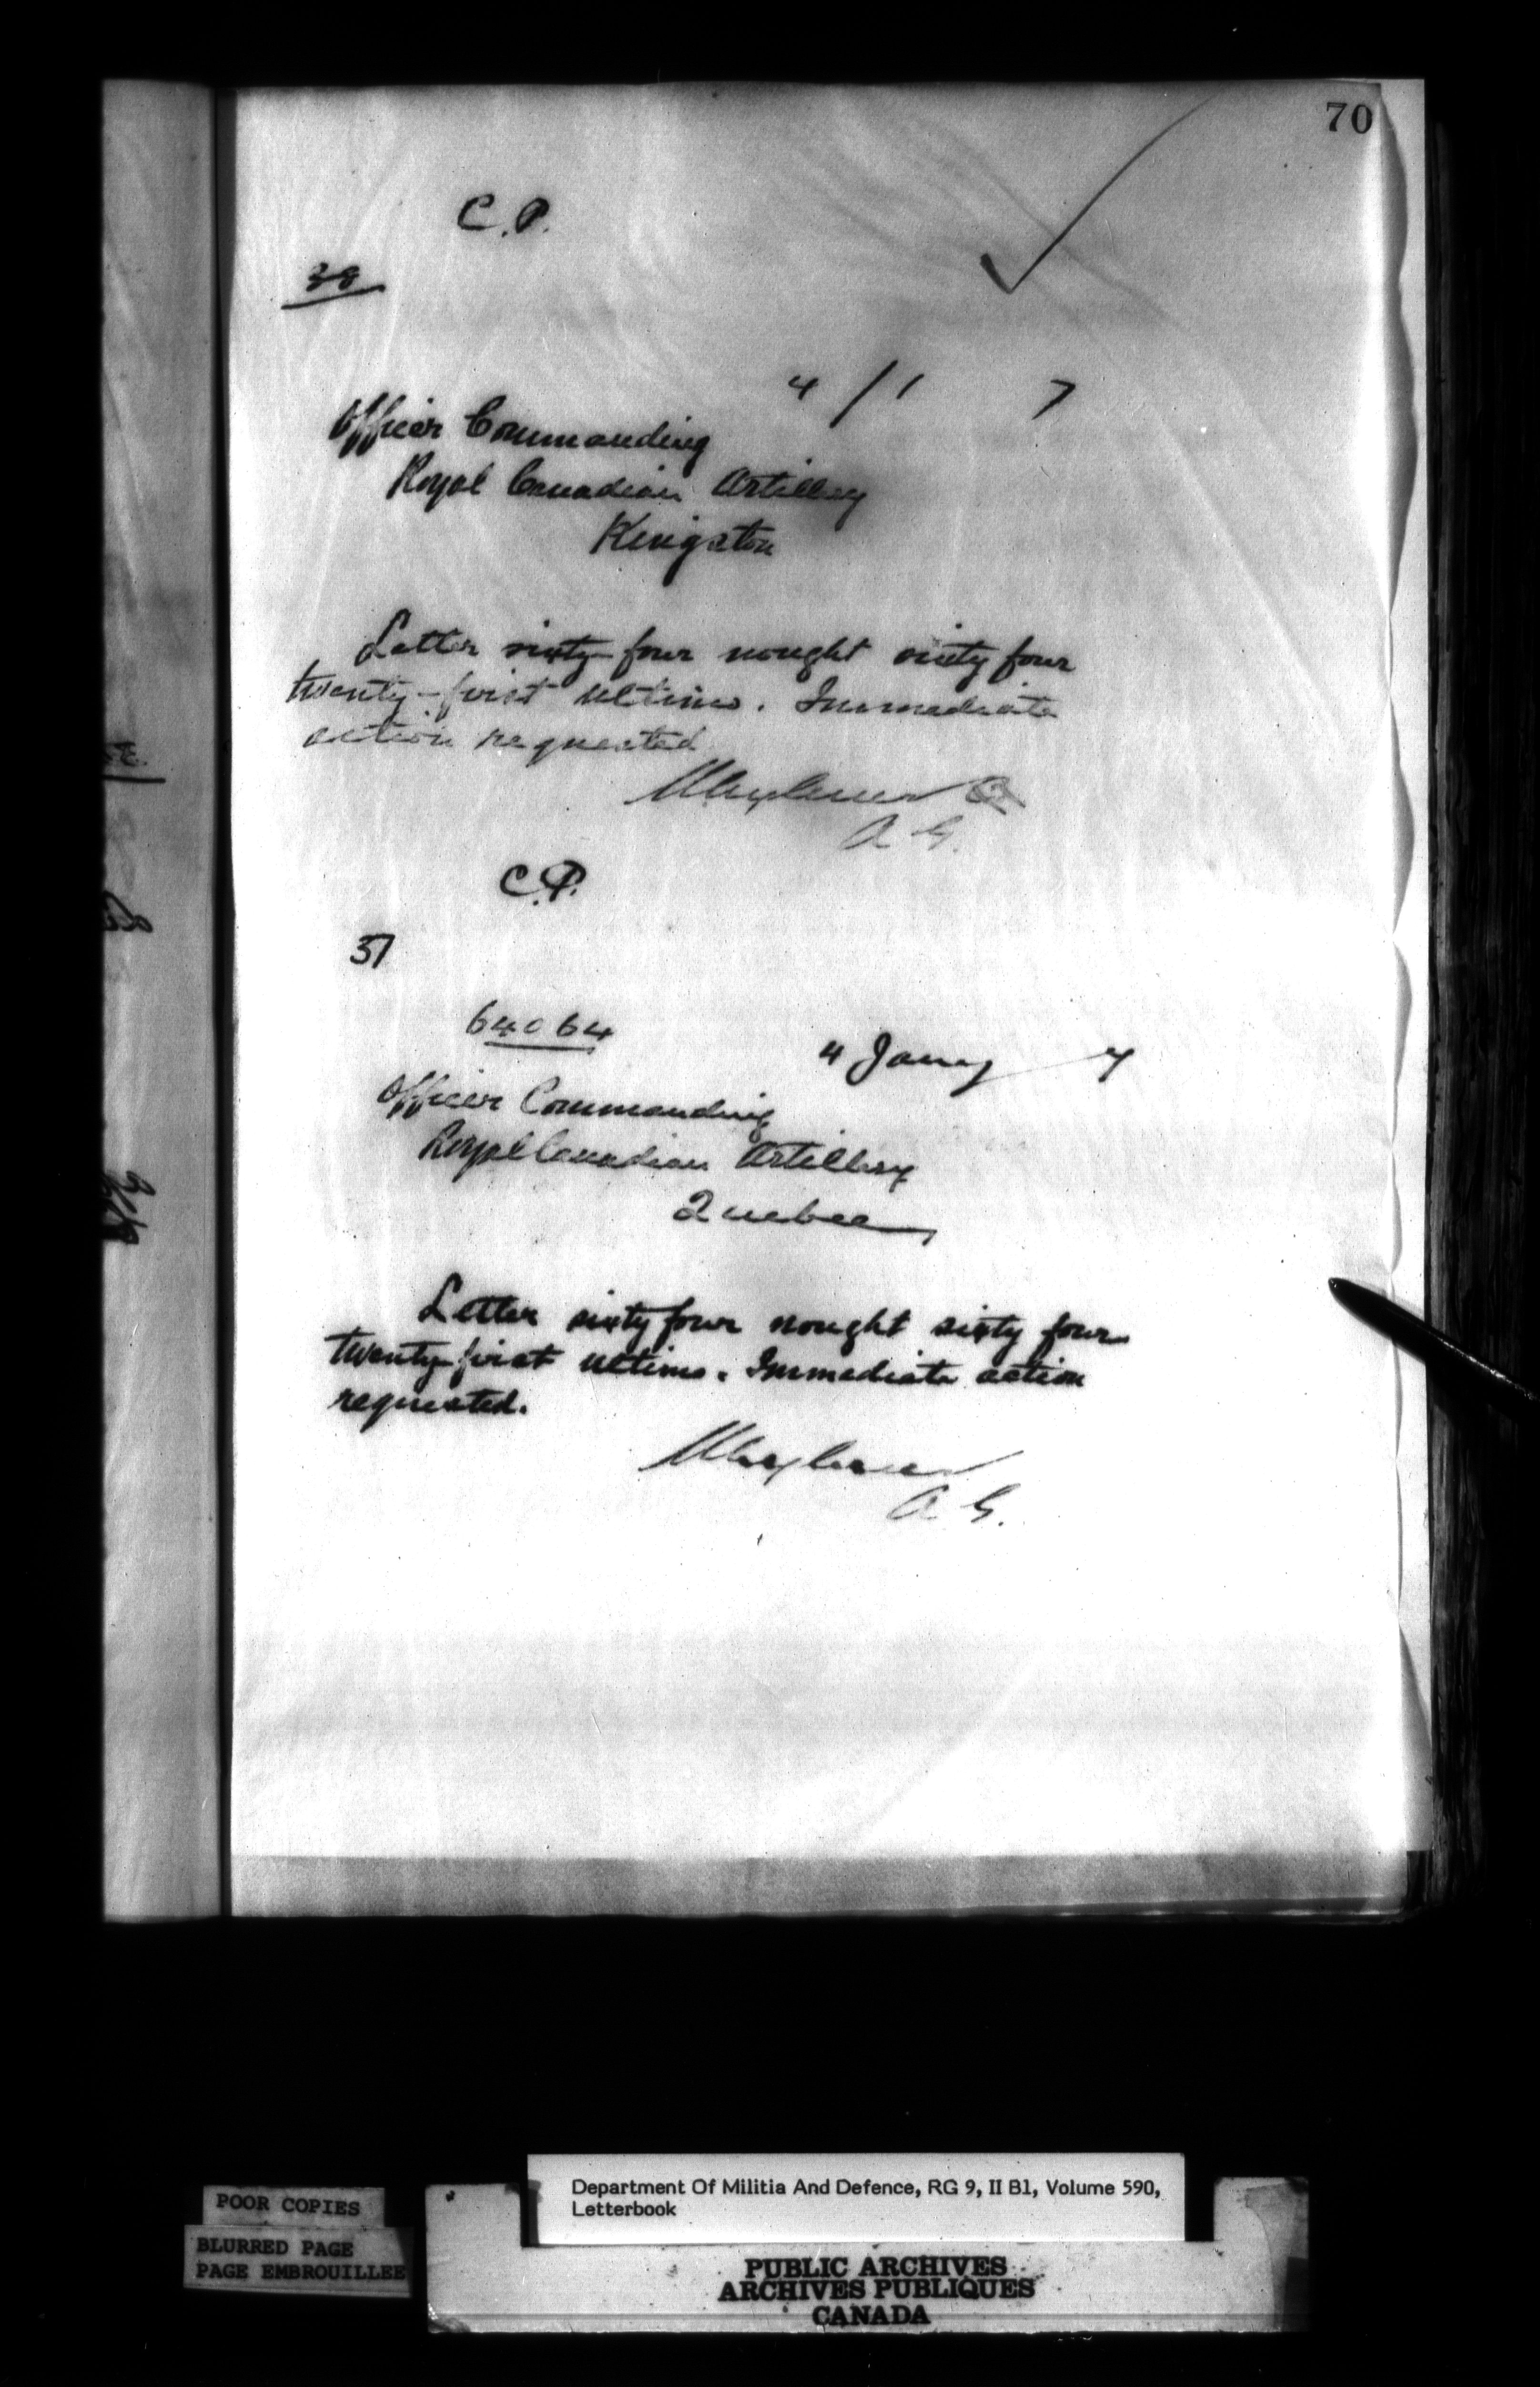 70
C.P.
38
4 / 1 7
Officer Commanding
Royal Canadian Artillery
Kingston
Letter sixty four nought sixty four
twenty-first ultimo. Immediate
action requested
A G.
C.P.
37
64064
4 Jany 7
Officer Commanding
Royal Canadian Artillery
Quebec
Letter sixty four nought sixty four
twenty-first ultimo. Immediate action
requested.
A G.
POOR COPIES
BLURRED PAGE
PAGE EMBROUILLEE
Department Of Militia And Defence, RG 9, II B1, Volume 590,
Letterbook
PUBLIC ARCHIVES
ARCHIVES PUBLIQUES
CANADA